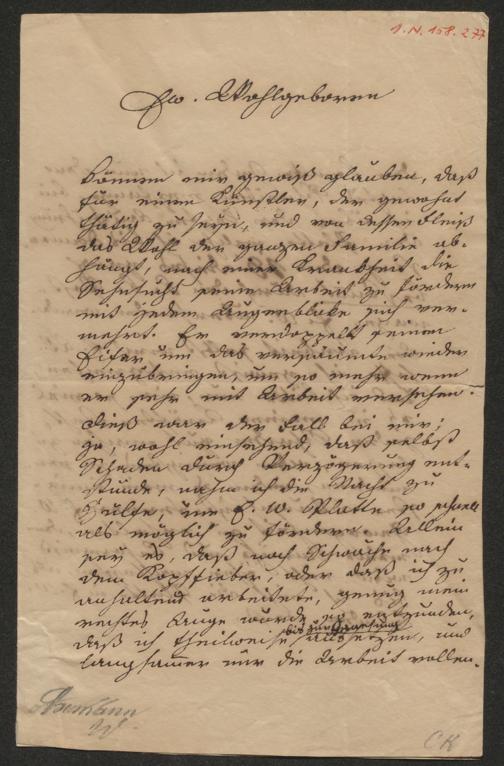 I.N. 158.277
Ew. Wohlgeboren
können mir gewiß glauben, daß
für einen Künstler, der gewohnt
thätig zu seyn, und von dessen Fleiß
das Wohl der ganzen Familie ab-
hängt, nach einer Krankheit die
Sehnsucht seine Arbeit zu fördern
mit jedem Augenblicke sich ver-
mehrt. Er verdoppelt seinen
Eifer um das versäumte wieder
einzubringen, um so mehr wenn
er sehr mit Arbeit versehen.
Dieß war der Fall bei mir;
ja, wohl einsehend, daß selbst
Schaden durch Verzögerung ent-
stünde, nahm ich die Nacht zu
Hülfe, um E. W. Platte so schnell
als möglich zu fördern. Allein
sey es, daß noch Schwäche nach
dem Kopffieber, oder daß ich zu
anhaltend arbeitete, genug mein
rechtes Auge wurde so entzunden,
bis zur Genesung
daß ich theilweise aussetzen, und
langsamer nur die Arbeit vollen-
Axmann
CK